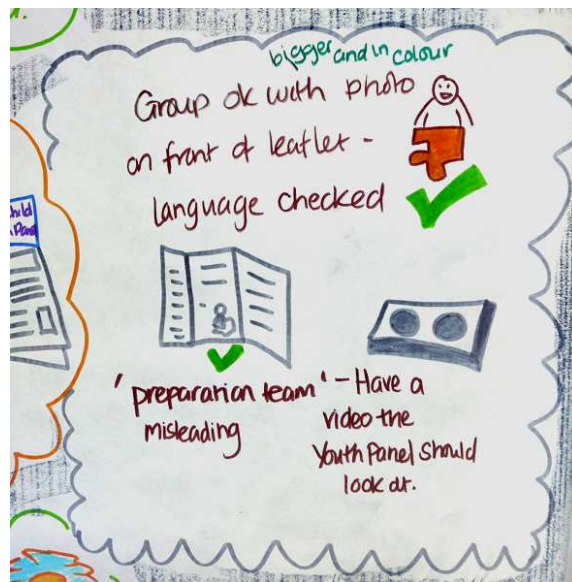 bigger and in colour
Group ok with photo
on front of leaflet -
language checked
'preparation team' - Have a
misleading
video the
Youth Panel should
look at.